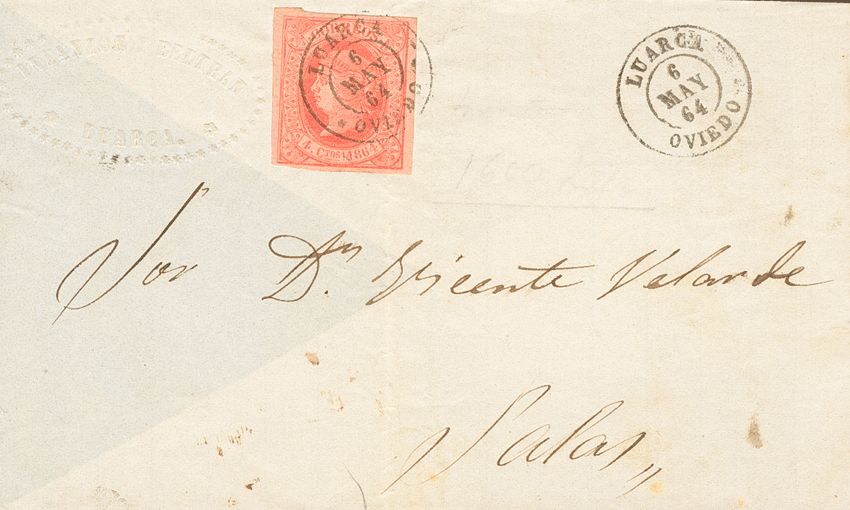 LUARCA
6
MAY
64
OVIEDO
4 CTOS 1864
LUARCA
6
MAY
64
OVIEDO
LUARCA.
1600
Sor Dn. Vicente Velarde
Salas,,